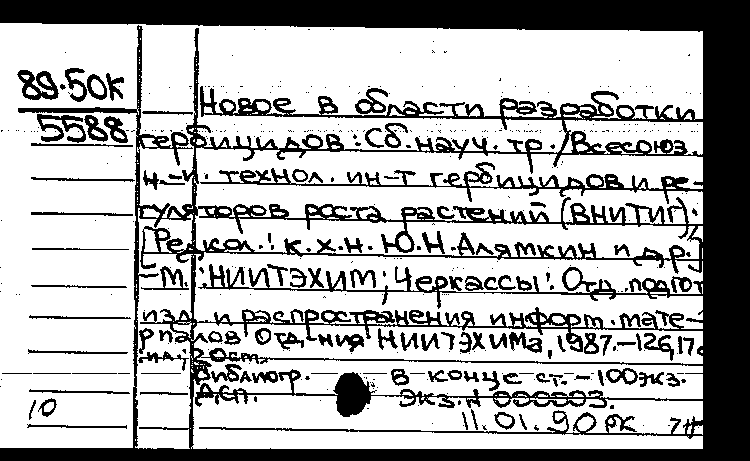 89-50К
5588
Новое в области разработки
гербицидов: Сб. науч. тр./Всесоюз.
н.-и. технол. ин-т гербицидов и ре-
гуляторов роста растений (ВНИТИГ);
[Редкол.: к.х.н. Ю.Н. Аляткин и др.]
-М.: НИИТЭХИМ; Черкассы: Отд. подгот
изд. и распространения информ. мате-
риалов Отд-ния НИИТЭХИМа, 1987.-126,17с
ил.; 20 см.
Библиогр. в конце ст. - 100 экз.
ДСП. Экз. N 000003.
10
11.01.90 РК